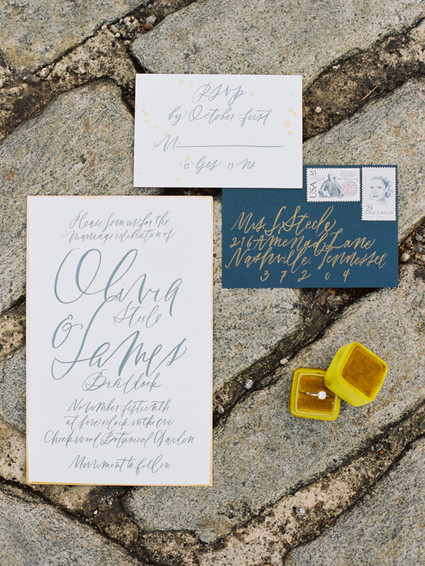 RSVP
by October first
M
yes no
USA
GRACE KELLY
Mrs. J. Steele
216 Amenady Lane
Nashville, Tennessee
37204
Please join us for the
marriage celebration of
Olivia
Steele
&
James
Braddock
November fifteenth
at five o'clock on the one
Cheekwood Botanical Garden
Merriment to follow